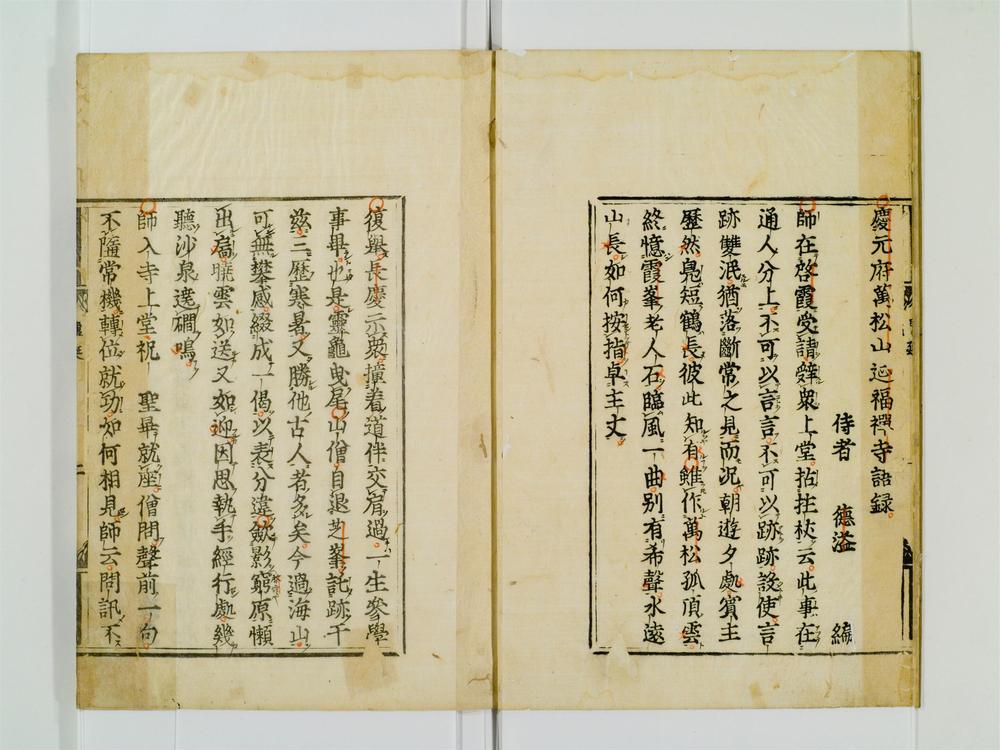 慶元府萬松山延福禪寺語録
侍者 德溢 編
師在啓霞受請辭衆上堂拈拄杖云此事在
通人分上不可以言言不可以跡跡設使言
跡雙泯猶落斷常之見而况朝遊夕處賓主
歷然鳬短鶴長彼此知有雖作萬松孤頂雲
終憶霞峯老人石臨風一曲別有希聲水遠
山長如何按指卓主丈
復舉長慶示衆撞着道伴交肩過一生參學
事畢也是靈龜曳尾山僧自退芝峯託跡于
玆三歷寒暑又勝他古人者多矣今過海山
可無攀感綴成一偈以表分違斂影窮原懶
出喬曉雲如送又如迎因思執手經行處幾
聽沙泉遶磵鳴
師入寺上堂祝 聖畢就座僧問聲前一句
不墮常機轉位就功如何相見師云問訊不